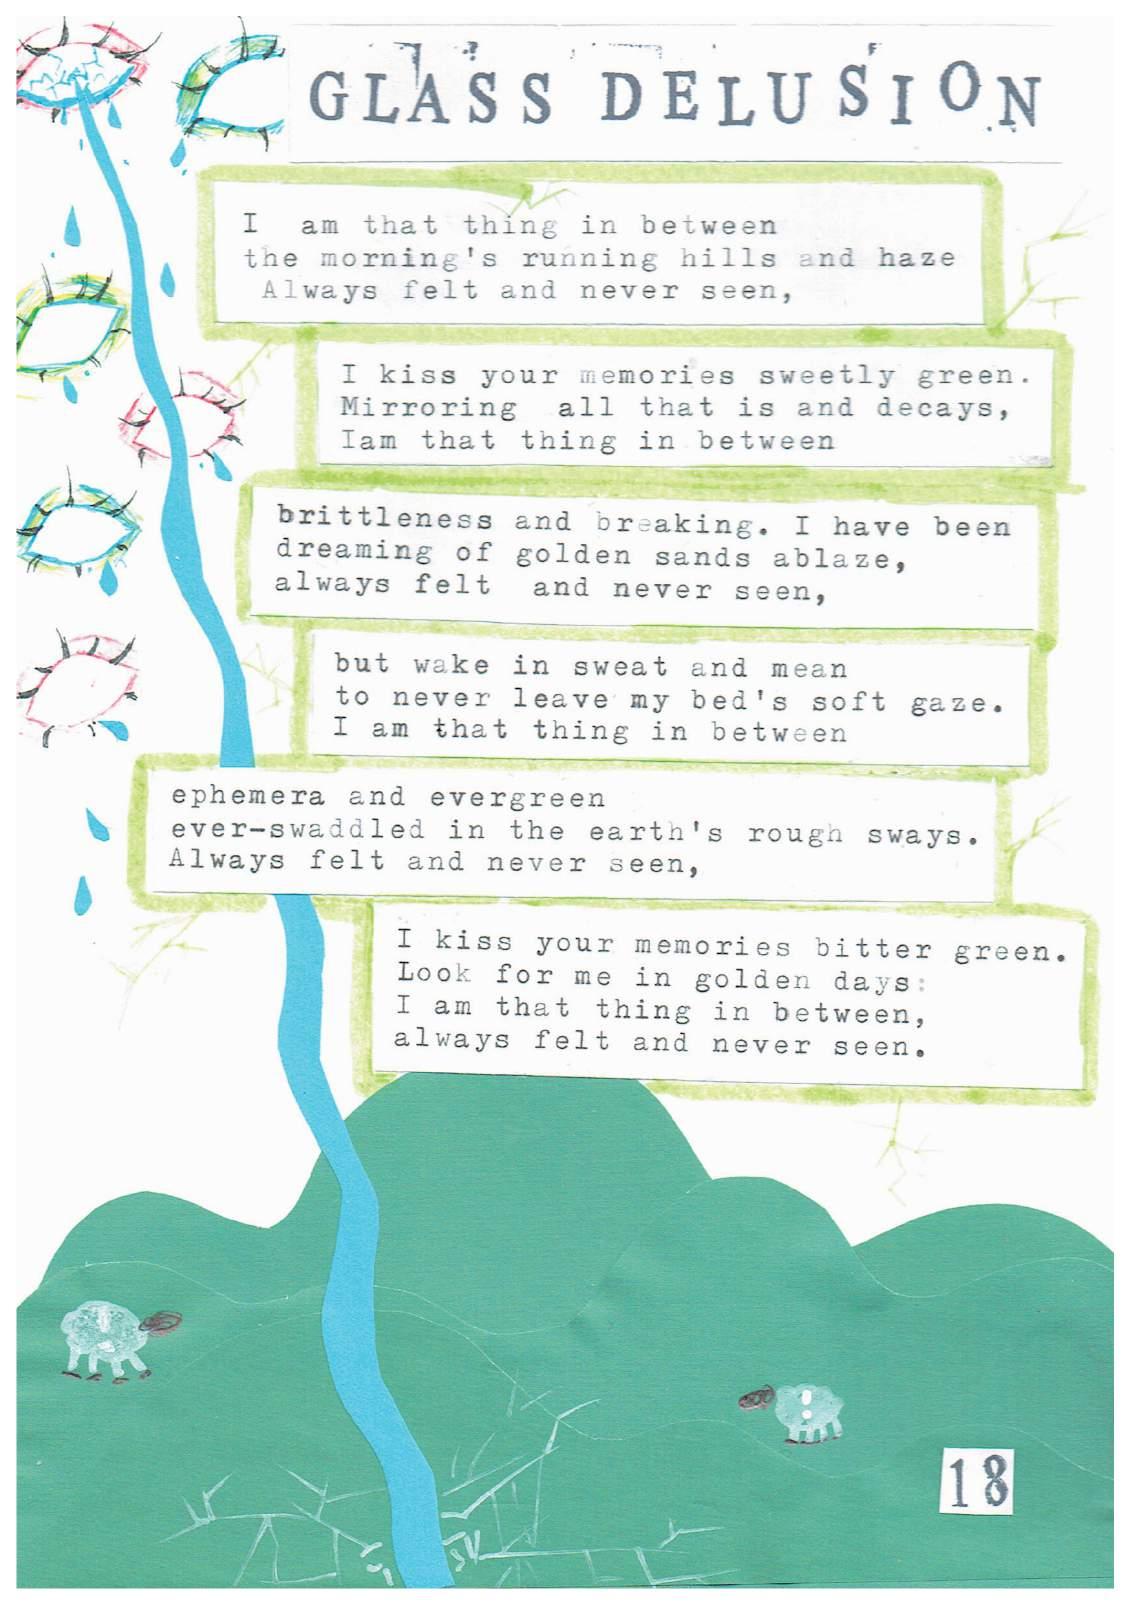 GLASS DELUSION
I am that thing in between
the morning's running hills and haze
Always felt and never seen,
I kiss your memories sweetly green.
Mirroring all that is and decays,
Iam that thing in between
brittleness and breaking. I have been
dreaming of golden sands ablaze,
always felt and never seen,
but wake in sweat and mean
to never leave my bed's soft gaze.
I am that thing in between
ephemera and evergreen
ever-swaddled in the earth's rough sways.
Always felt and never seen,
I kiss your memories bitter green.
Look for me in golden days:
I am that thing in between,
always felt and never seen.
18